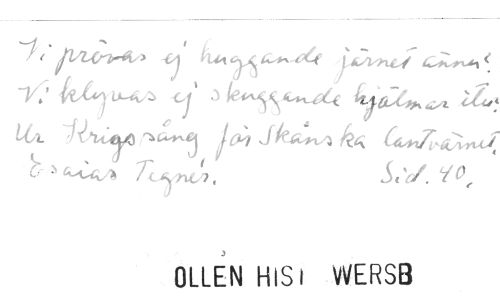 Vi prövas ej huggande järnet ännu?
Vi klyvas ej skuggande hjälmar itu?
Ur Krigssång för Skånska Lantvärnet.
Esaias Tegnér. Sid. 40.
OLLÉN HIST WERSB